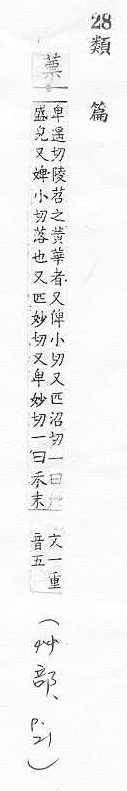 28類 篇
蔈
卑遥切陵苕之黄華者又俾小切又匹沼切一曰艸
盛皃又婢小切落也又匹妙切又卑妙切一曰禾末
文一重
音五
(艸部、p.21)